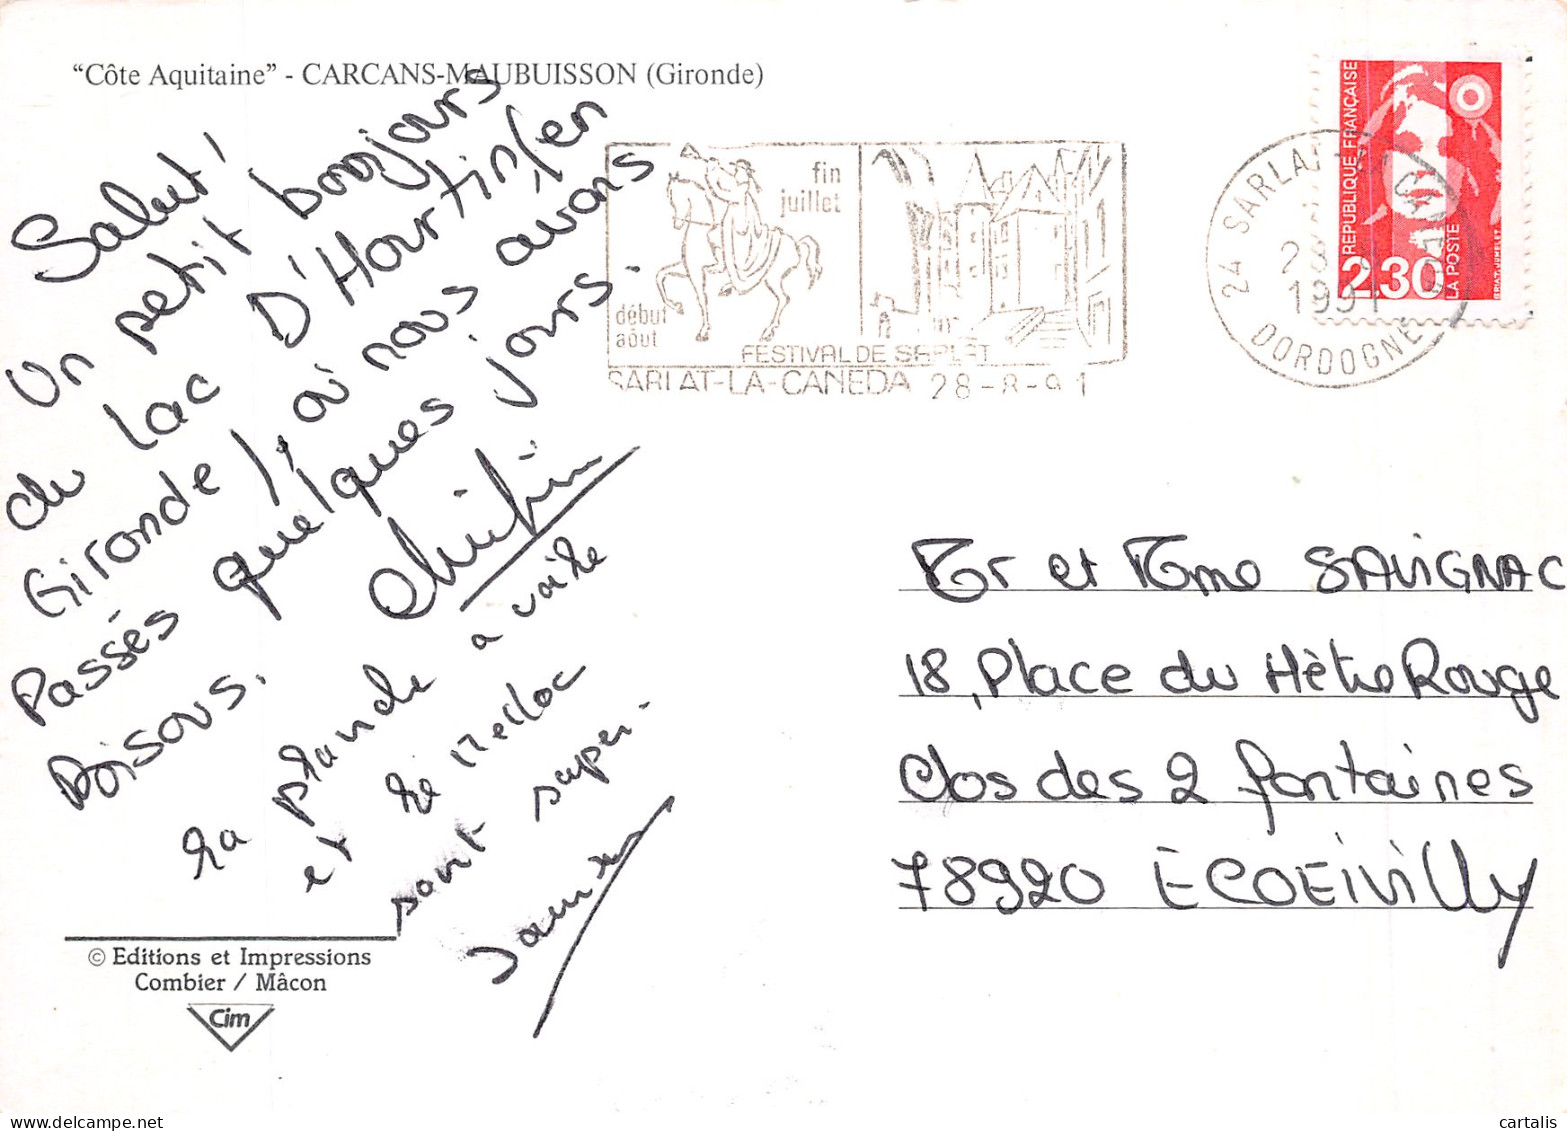 “Côte Aquitaine” - CARCANS-MAUBUISSON (Gironde)
Salut!
Un petit bonjours
du lac D'Hourtin, (en
Gironde), où nous avons
Passés quelques jours.
Bisous.
la planche a voile
et le Medoc
sont super.
fin
juillet
début
août
FESTIVAL DE SARLAT
SARLAT-LA-CANEDA 28-8-91
24 SARLAT-LA-CANEDA
28
1991
DORDOGNE
REPUBLIQUE FRANÇAISE
2.30
LA POSTE
Mr et Mme SAVIGNAC
18, Place du Hètre Rouge
Clos des 2 fontaines
78920 ECQUEVILLY
© Editions et Impressions
Combier / Mâcon
Cim
cartalis